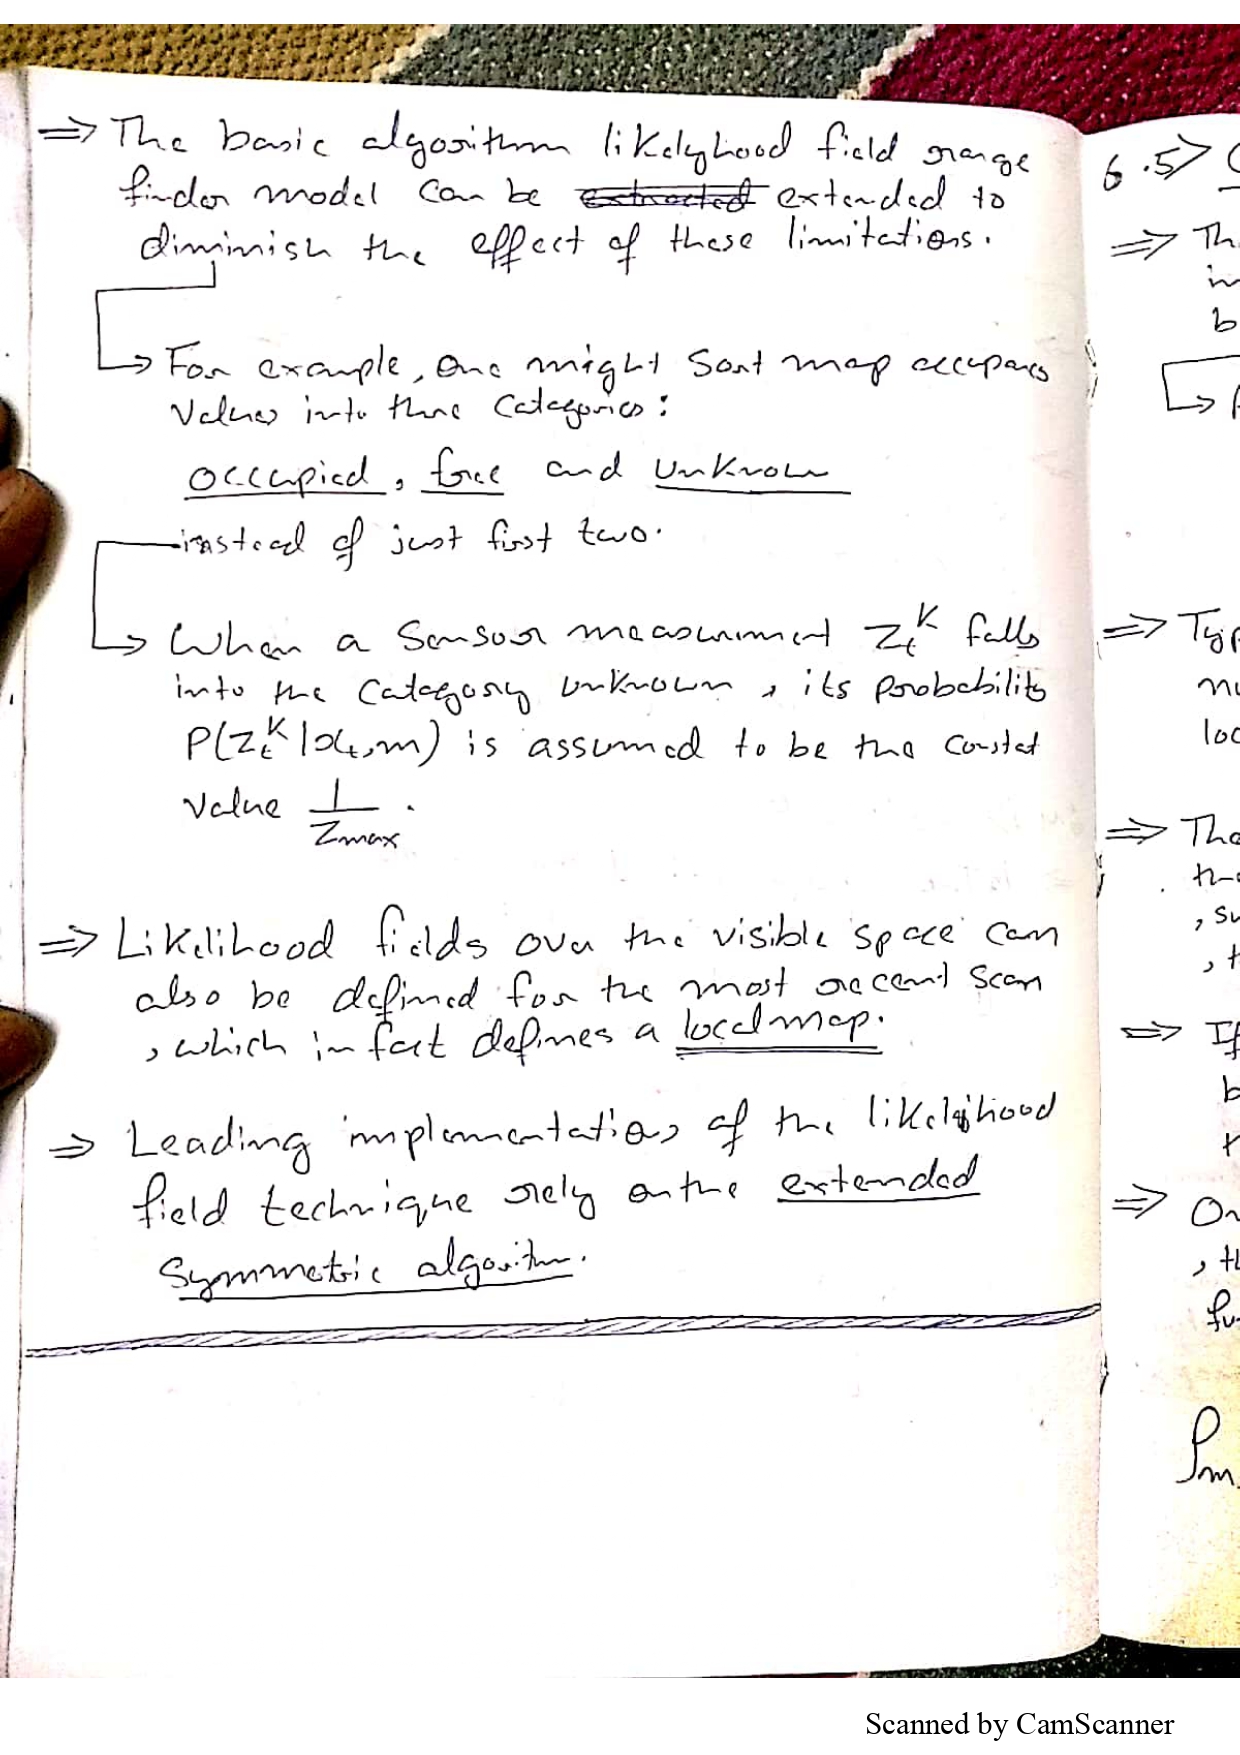 ⇒ The basic algorithm likelyhood field range
finder model can be extracted extended to
diminish the effect of these limitations.
↳ For example, one might sort map occupancy
values into three categories:
occupied, free and unknown
instead of just first two.
↳ When a sensor measurement Z_t^K falls
into the category unknown, its probability
P(Z_t^K | x_t, m) is assumed to be the constat
value 1/Z_max.
⇒ Likelihood fields over the visible space can
also be defined for the most recent scan
, which in fact defines a local map.
⇒ Leading implementations of the likelyhood
field technique rely on the extended
symmetric algorithm.
6.5>
⇒ Th
in
b
↳
⇒ Typ
nu
loc
⇒ The
the
, su
, t
⇒ If
b
r
⇒ On
, th
fu
Pm
Scanned by CamScanner